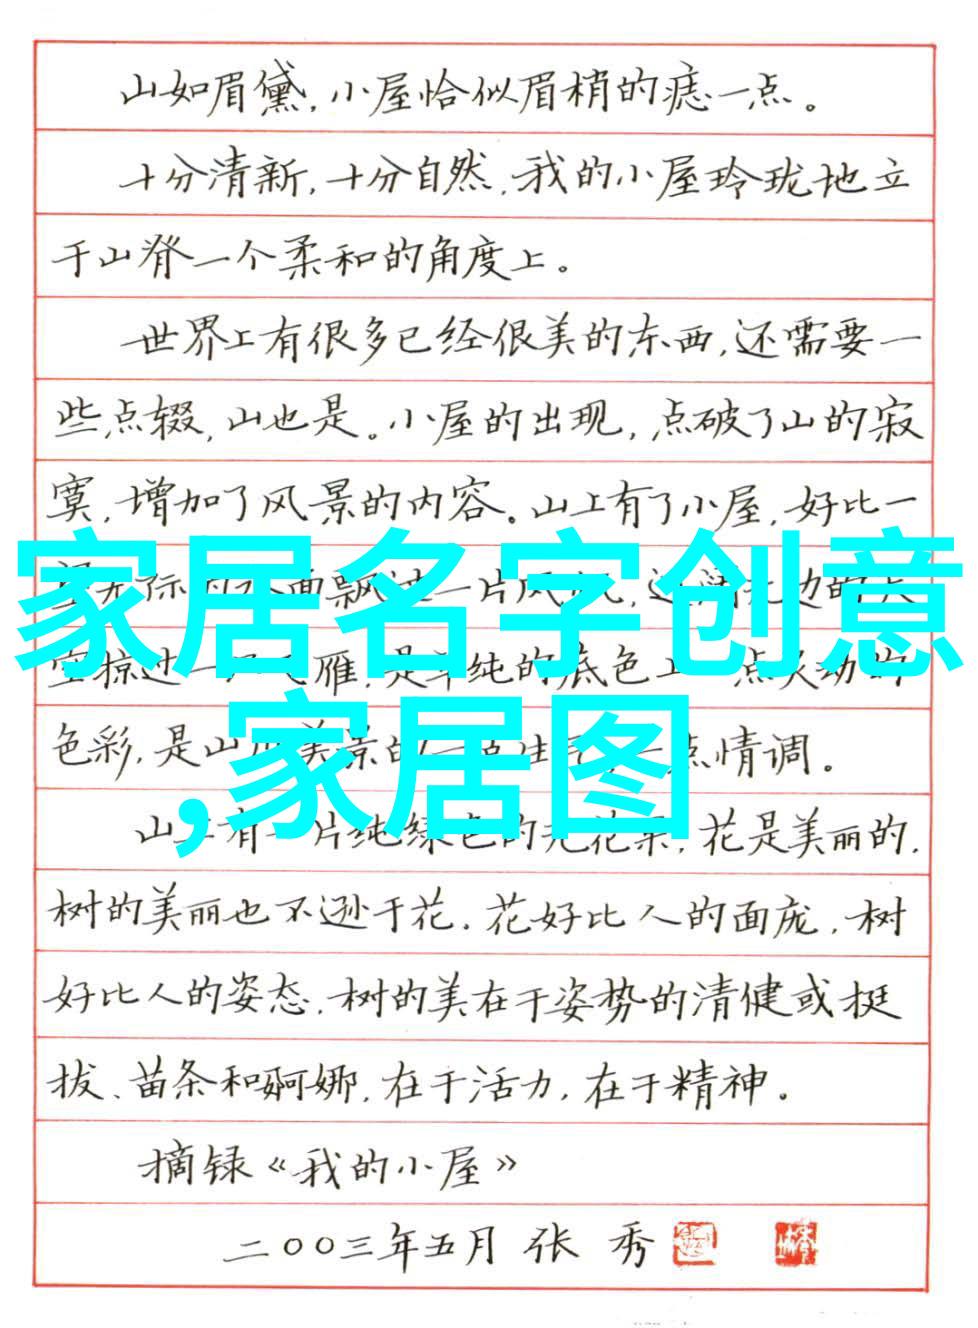 山如眉黛,小屋恰似眉梢的痣一点。
十分清新,十分自然,我的小屋玲珑地立
于山脊一个柔和的角度上。
世界上有很多已经很美的东西,还需要一
些点缀,山也是。小屋的出现,点破了山的寂
寞,增加了风景的内容。山上有了小屋,好比一
家居名字创意
面飘过一片风
雁,是单纯的底色上
,家居图
色彩,是山 情调。
山上有一片纯绿色的无花果,花是美丽的,
树的美丽也不逊于花。花好比人的面庞,树
好比人的姿态。树的美在于姿势的清健或挺
拔、苗条和婀娜,在于活力,在于精神。
摘录《我的小屋》
二〇〇三年五月 张 秀